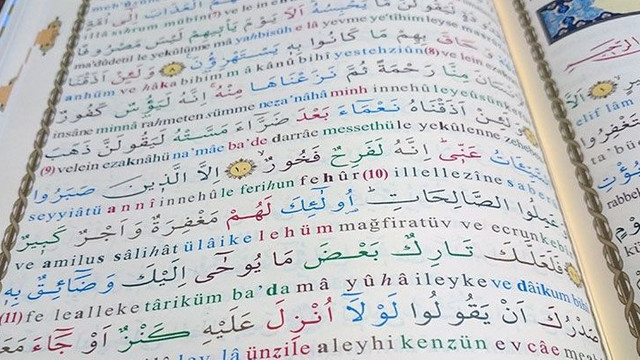 الْعَذَابَ اِلٰٓى
illâ sihrum mübîn(7) ve lein e
لَيَقُولُنَّ مَا يَحْبِسُهُ اَلَا يَوْمَ يَأْتِيهِمْ لَيْسَ مَصْرُوفًا
ma'dûdetil le yekûlünne mâ yahbisüh e lâ yevme ye'tîhim leyse masrûfen
وَحَاقَ بِهِمْ مَا كَانُوا بِهِ يَسْتَهْزِؤُنَ ﴿٨﴾ وَلَئِنْ اَذَقْنَا
anhüm ve hâka bihim mâ kânû bihî yestehziûn(8) ve lein ezaknel
مِنَّا رَحْمَةً ثُمَّ نَزَعْنَاهَا مِنْهُ اِنَّهُ لَيَؤُسٌ كَفُورٌ
insâne minnâ rahmeten sümme neza'nâhâ minh innehû leyeûsün
وَلَئِنْ اَذَقْنَاهُ نَعْمَاءَ بَعْدَ ضَرَّاءَ مَسَّتْهُ لَيَقُولَنَّ ذَهَبَ
(9) velein ezaknâhü na'mâe ba'de darrâe messethü le yekûlenne zehebes
عَنِّى اِنَّهُ لَفَرِحٌ فَخُورٌ ﴿١٠﴾ اِلَّا الَّذِينَ صَبَرُوا
seyyiâtü annî innehû le ferihun fehûr(10) illellezîne saberû
وَعَمِلُوا الصَّالِحَاتِ اُولٰٓئِكَ لَهُمْ مَغْفِرَةٌ وَاَجْرٌ كَبِيرٌ
ve amilus sâlihât ülâike lehüm mağfiratüv ve ecrun kebîr
فَلَعَلَّكَ تَارِكٌ بَعْضَ مَا يُوحٰٓى اِلَيْكَ وَضَائِقٌ بِهِ
(11) fe lealleke târiküm ba'da mâ yûhâ ileyke ve dâikum bihî
صَدْرُكَ اَنْ يَقُولُوا لَوْلَٓا اُنْزِلَ عَلَيْهِ كَنْزٌ اَوْ جَٓاءَ مَعَهُ
lev lâ ünzile aleyhi kenzün ev câe